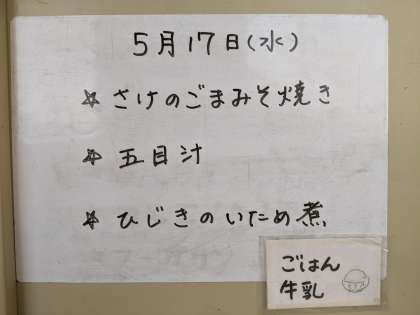 5月17日(水)
☆ さけのごまみそ焼き
☆ 五目汁
☆ ひじきのいため煮
ごはん
牛乳